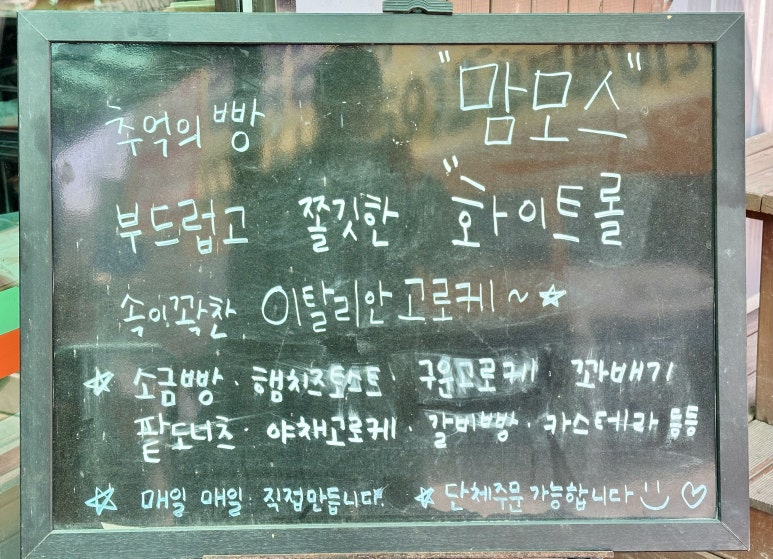 추억의 빵 "맘모스"
부드럽고 쫄깃한 "화이트롤
속이꽉찬 이탈리안고로케~☆
☆ 소금빵 · 햄치즈토스트 · 구운고로케 꽈배기
팥도너츠 · 야채고로케 · 갈비빵 · 카스테라 등등
☆ 매일 매일 직접만듭니다. ☆ 단체주문 가능합니다 ♡